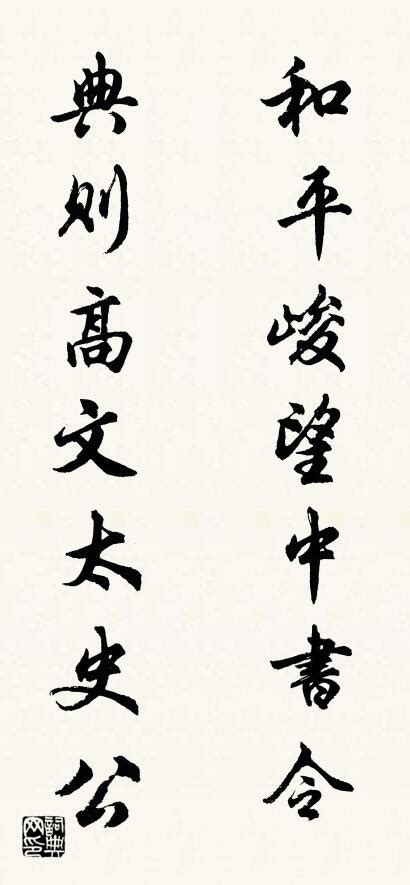 和平峻望中書令
典則高文太史公
詞典网印